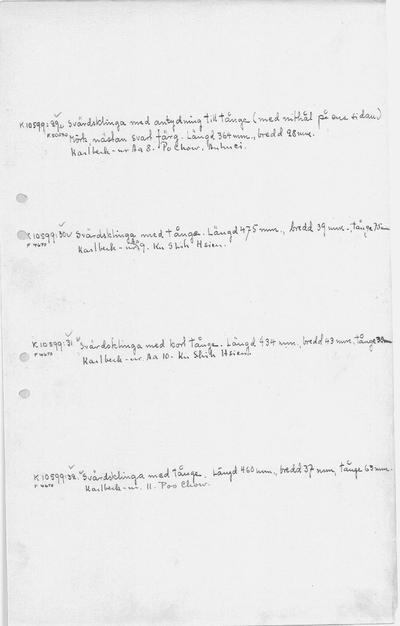 K10599:29. Svärdsklinga med antydning till tånge (med nithål på ena sidan)
Mörk, nästan svart färg. Längd 364 mm., bredd 28 mm.
Karlbeck-nr Aa 8. Po Chow, Anhuei.
K10599:30 Svärdsklinga med tånge. Längd 475 mm., bredd 39 mm., tånge 75 mm
Karlbeck-nr 9. Ku Shih Hsien.
K10599:31 Svärdsklinga med kort tånge. Längd 434 mm., bredd 43 mm, tånge 33 mm
Karlbeck-nr. Aa 10. Ku Shih Hsien.
K10599:32. Svärdsklinga med tånge. Längd 460 mm., bredd 37 mm, tånge 63 mm.
Karlbeck-nr. 11. Poo Chow.